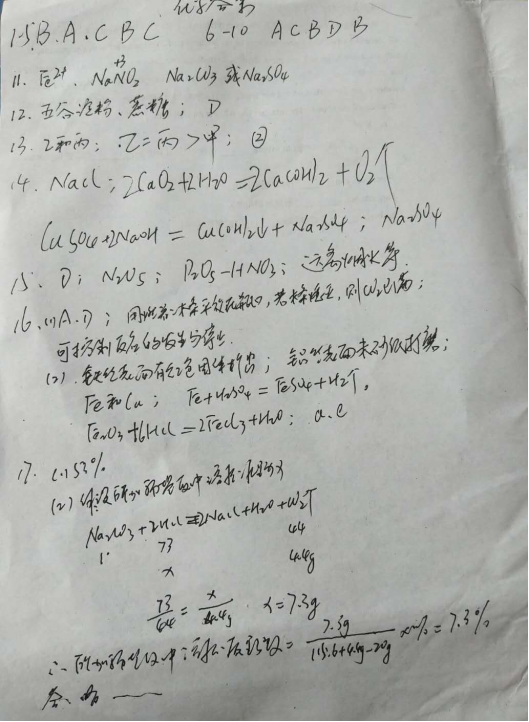 化学答案
1-5 B.A.C B C 6-10 A C B D B
11. Fe²⁺、NaN⁺³O₂ Na₂CO₃ 或 Na₂SO₄
12. 淀粉、蔗糖; D
13. 乙和丙; 乙=丙>甲; ②
14. NaCl; 2CaO₂+2H₂O=2Ca(OH)₂+O₂↑
CuSO₄+2NaOH=Cu(OH)₂↓+Na₂SO₄; Na₂SO₄
15. D; N₂O₅; P₂O₅-HNO₃; 远离火
16. (1) A.D; 用燃着木条平放在瓶口,若木条熄灭,则CO₂已满;
可控制反应的发生与停止
(2). 铁丝表面有红色固体析出; 铝丝表面未砂纸打磨;
Fe和Cu; Fe+H₂SO₄=FeSO₄+H₂↑。
Fe₂O₃+6HCl=2FeCl₃+H₂O; a.e
17. (1) 53%
(2)
Na₂CO₃+2HCl=2NaCl+H₂O+CO₂↑
73 44
x 4.4g
73/44=x/4.4g x=7.3g
∴ 所加稀盐酸中溶质质量分数=7.3g/(115.6+4.4g-20g)×%=7.3%
答:略